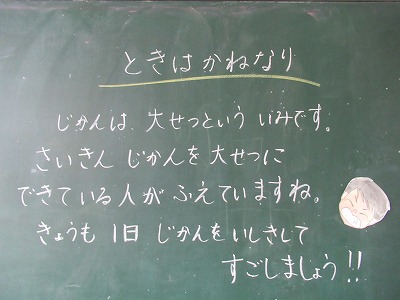 ときはかねなり
じかんは、大せつという いみです。
さいきん じかんを 大せつに
できている人が ふえていますね。
きょうも 1日 じかんをいしきして
すごしましょう!!